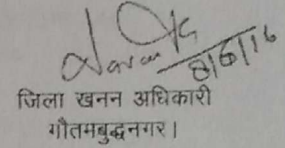 8/6/16
जिला खनन अधिकारी
गौतमबुद्धनगर।